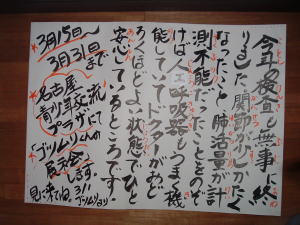 今年の検査も無事に終
りました。関節が少しかたく
なったことと肺活量が計
測不能だったことをのぞ
けば人工呼吸器もうまく機
能していてドクターがおど
ろくほどよい状態でひと
安心しているところです！
3月15日〜
3月31日まで
名古屋
青少年交流
プラザにて
「ゴツムリんの
展示会」
します。
見に来てね。